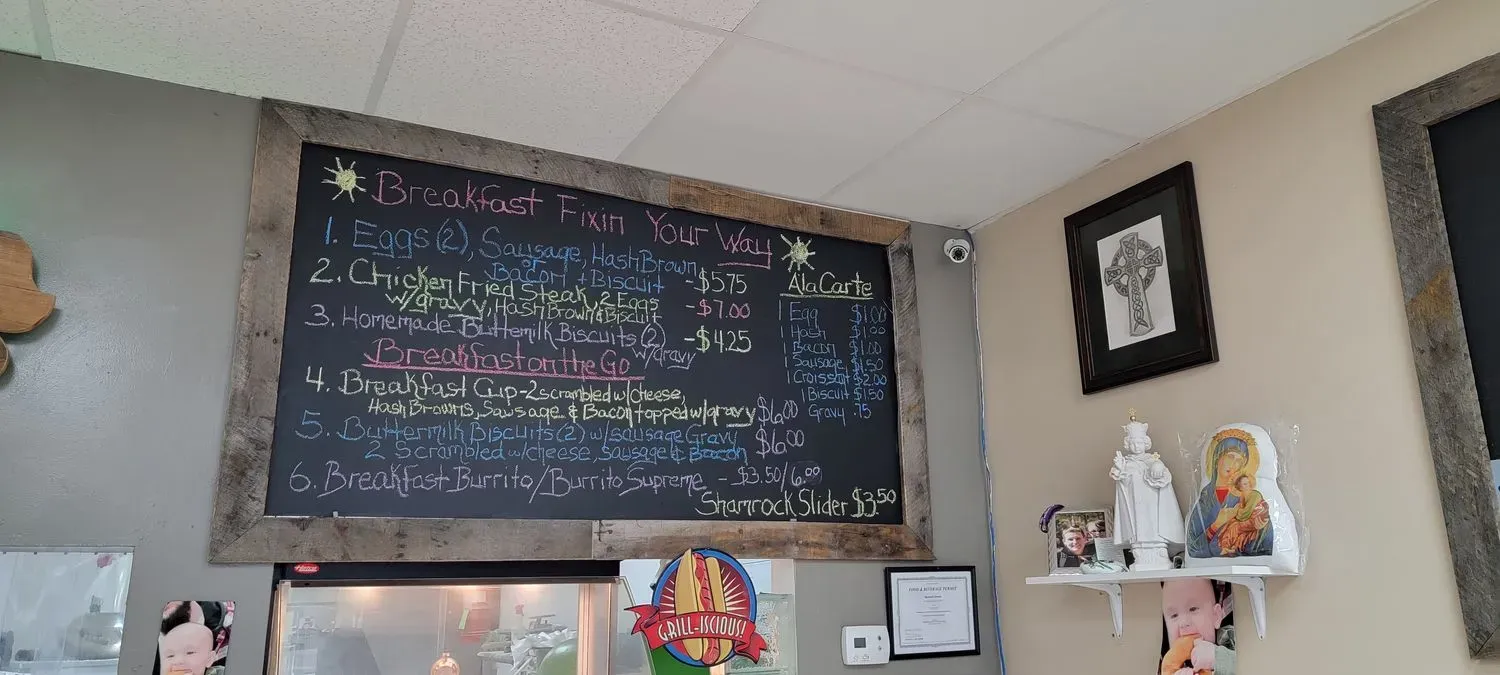 Breakfast Fixin Your Way
1. Eggs (2), Sausage, Hash Brown
or
Bacon + Biscuit - $5.75
2. Chicken Fried Steak, 2 Eggs
w/gravy, Hash Brown & Biscuit - $7.00
3. Homemade Buttermilk Biscuits (2)
w/gravy - $4.25
Breakfast on the Go
4. Breakfast Cup - 2 scrambled w/cheese,
Hash Browns, Sausage & Bacon topped w/gravy $6.00
5. Buttermilk Biscuits (2) w/sausage Gravy
2 Scrambled w/cheese, sausage & Bacon $6.00
6. Breakfast Burrito/Burrito Supreme - $3.50/6.00
Shamrock Slider $3.50
Ala Carte
1 Egg $1.00
1 Hash $1.00
1 Bacon $1.00
1 Sausage $1.50
1 Croissant $2.00
1 Biscuit $1.50
Gravy .75
GRILL-ISCIOUS!
FOOD & BEVERAGE PERMIT